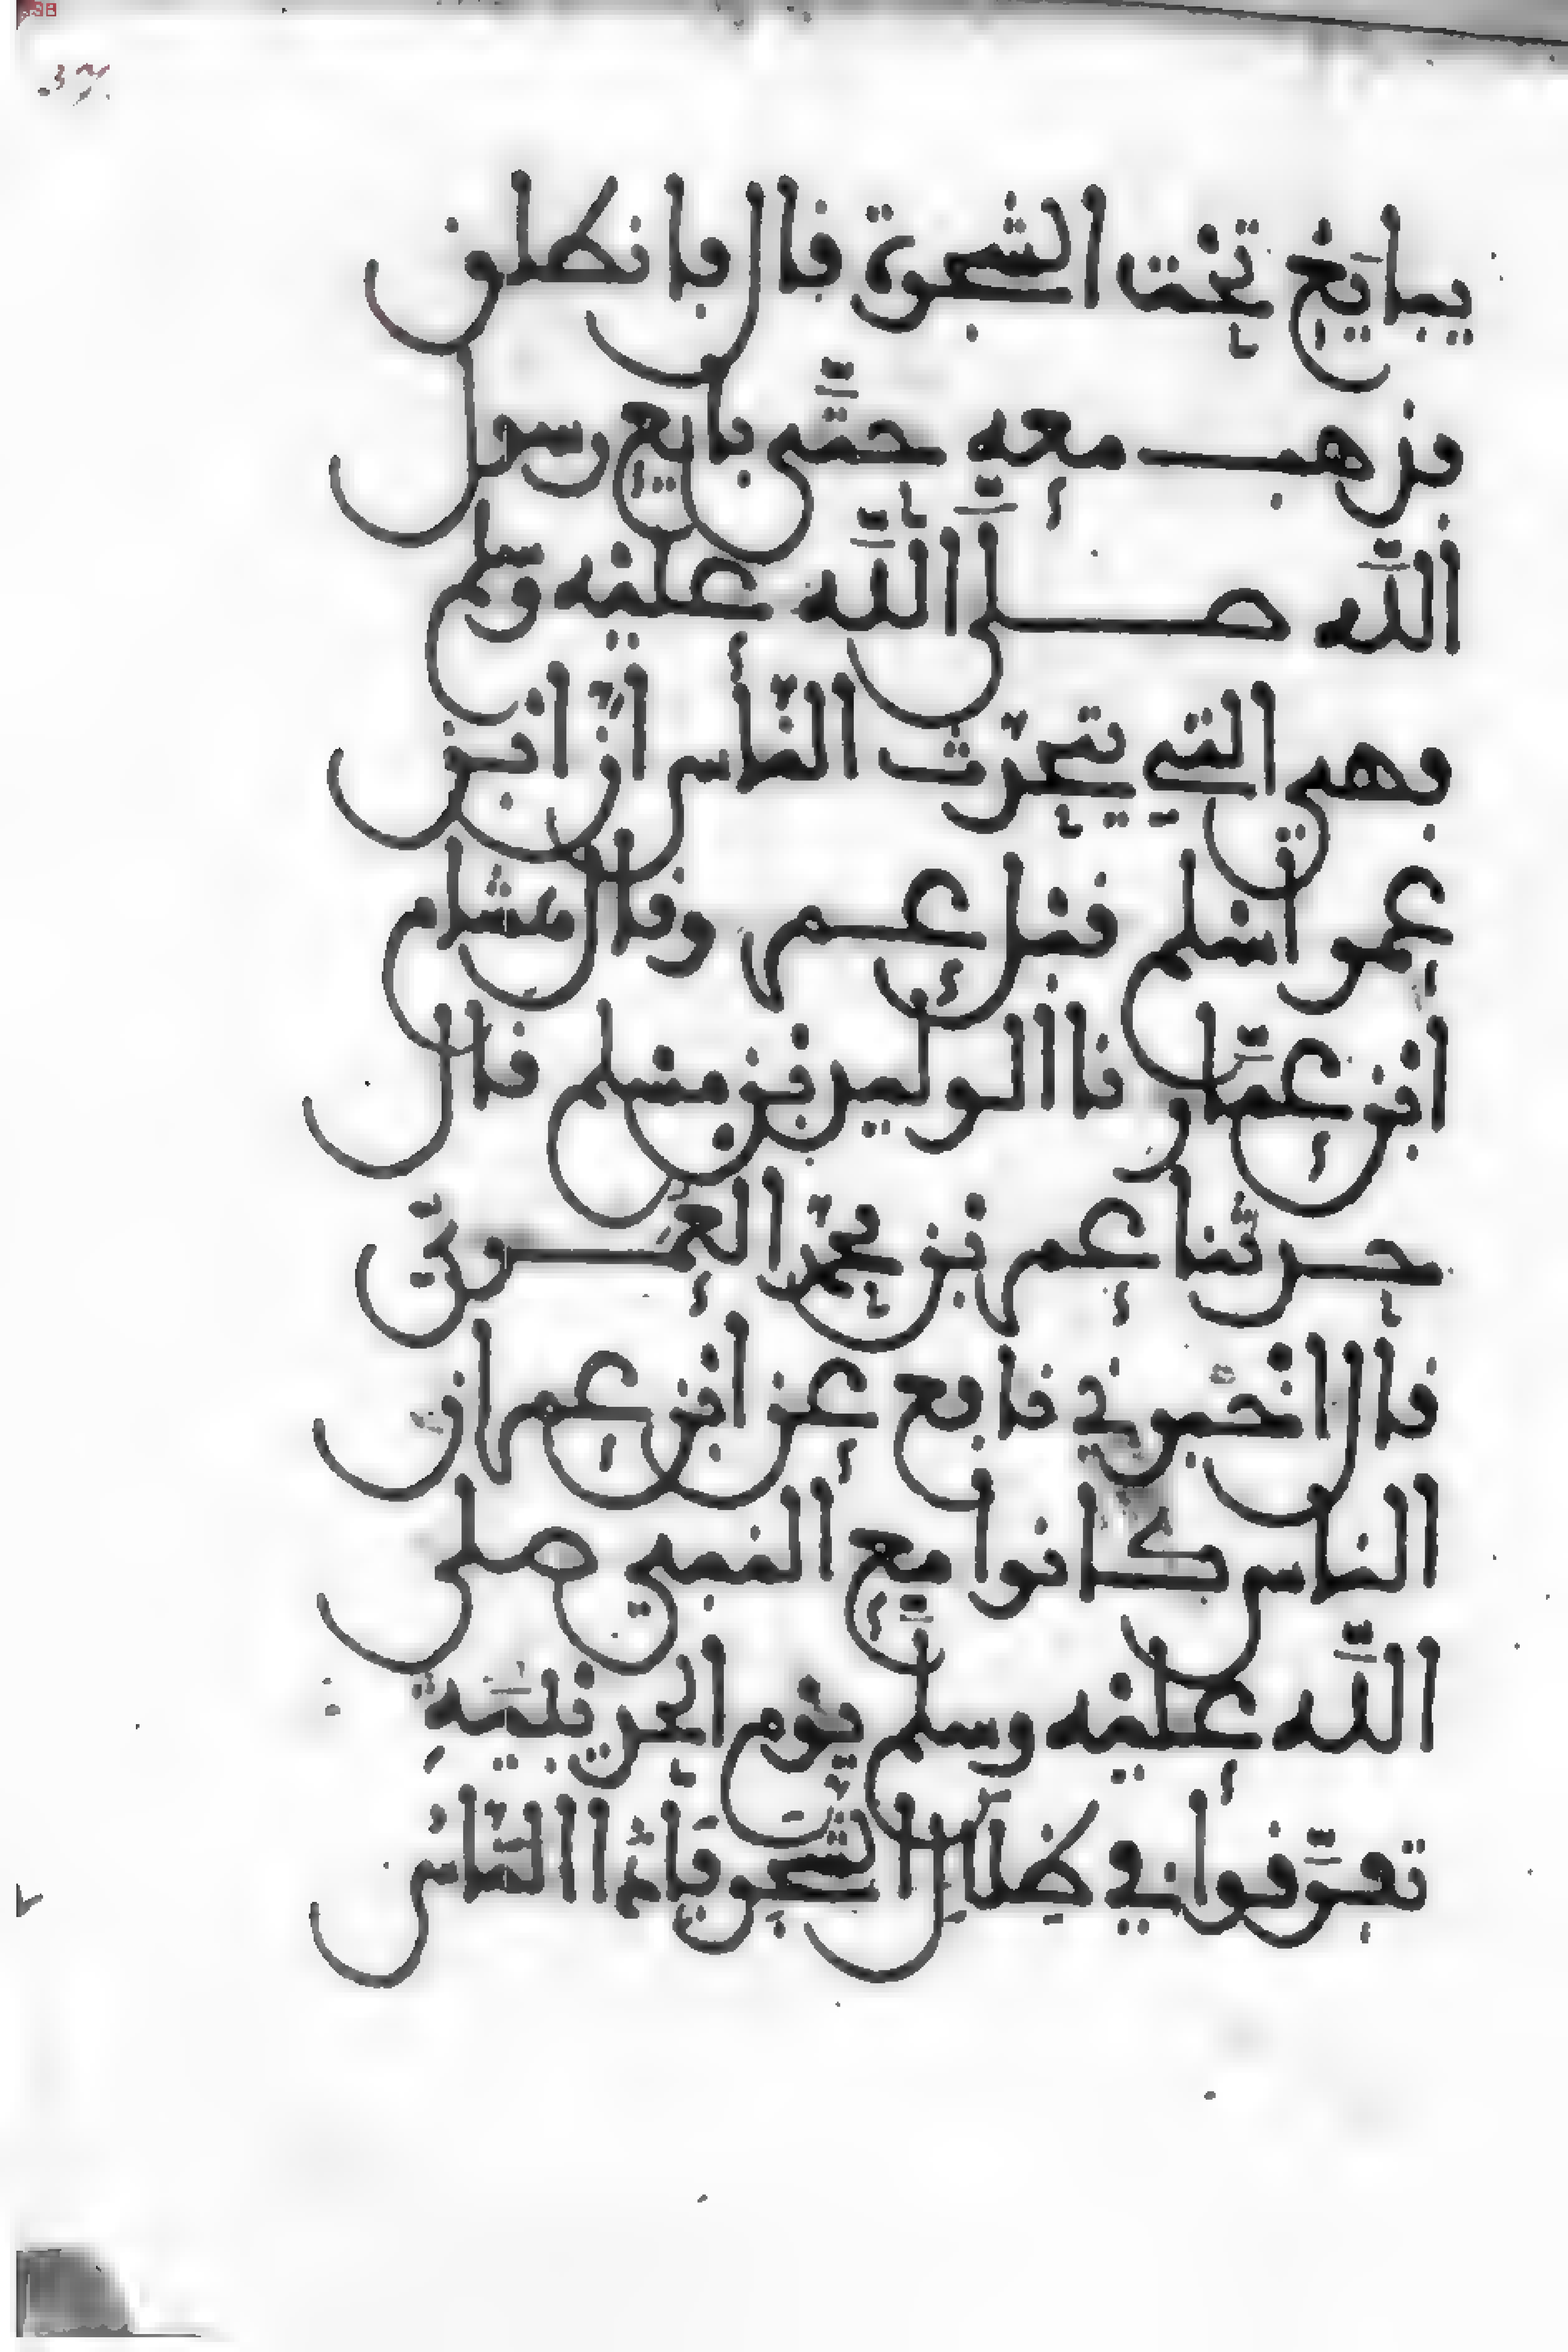 يبايع تحت الشجرة قال فانطلق
فذهب معه حتى بايع رسول
الله صلى الله عليه وسلم
فهي التي يتحدث الناس ان ابن
عمر اسلم قبل عمر وقال هشام
ابن عمار نا الوليد بن مسلم قال
حدثنا عمر بن محمد العمري
قال اخبرني نافع عن ابن عمر ان
الناس كانوا مع النبي صلى
الله عليه وسلم يوم الحديبية
تفرقوا في ظلال الشجر فاذا الناس